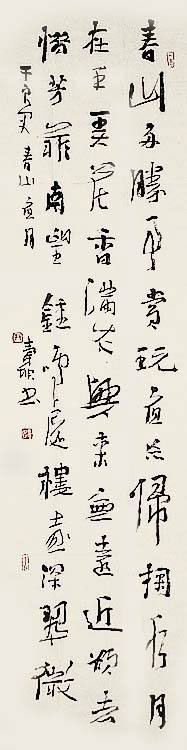 春山多勝事賞玩夜忘歸掬水月
在手弄花香滿衣興來無遠近欲去
惜芳菲南望鐘鳴處樓臺深翠微
于良史春山夜月
書